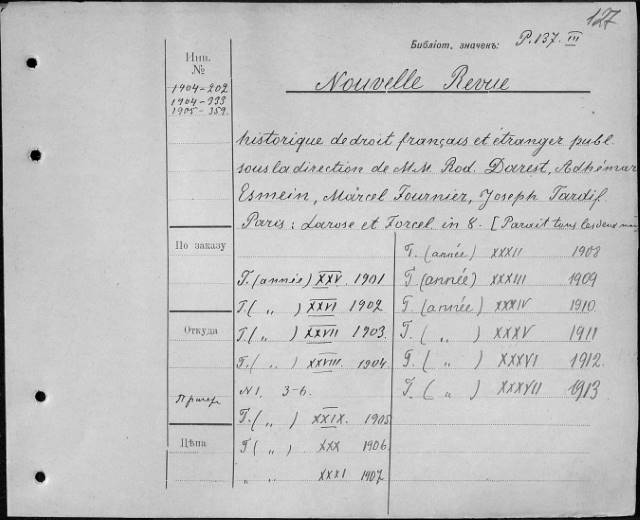 127
Библіот. значенъ: P.137. III
Инв.
№
1904-202
1904-333
1905-359.
Nouvelle Revue
historique de droit français et étranger publ.
sous la direction de M.M. Rod. Darest, Adhémar
Esmein, Marcel Fournier, Joseph Tardif.
Paris: Larose et Forcel. in 8. [Parait tous les deux
По заказу
Откуда
Цѣна
T. (année) XXV 1901
T. ( „ ) XXVI 1902
T. ( „ ) XXVII 1903.
T. ( „ ) XXVIII. 1904
N 1. 3-6.
T. ( „ ) XXIX. 1905
T. ( „ ) XXX 1906.
„ „ XXXI 1907
T. (année) XXXII 1908
T. (année) XXXIII 1909
T. (année) XXXIV 1910.
T. ( „ ) XXXV 1911
T. ( „ ) XXXVI 1912.
T. ( „ ) XXXVII 1913